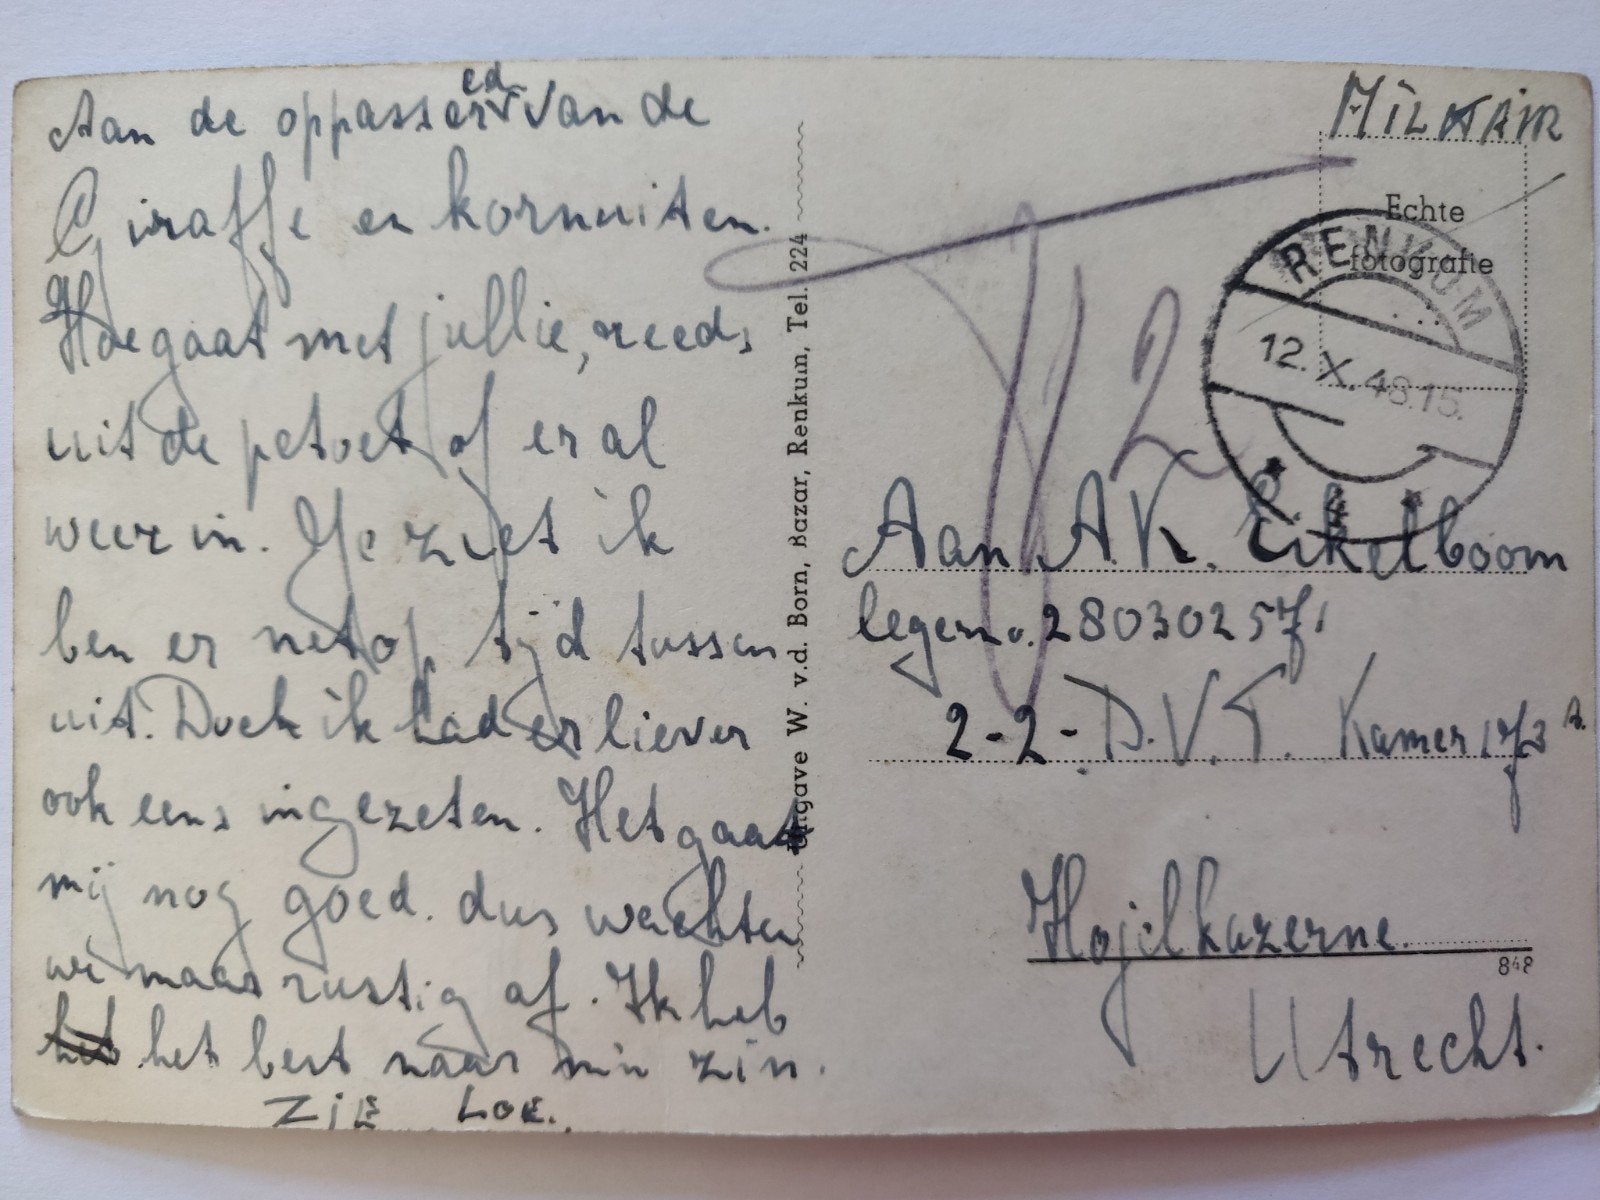 Aan de oppasser van de
ed
Giraffe en kornuiten.
Hoe gaat met jullie, reeds
uit de petoet of er al
weer in. Je ziet ik
ben er net op tijd tussen
uit. Doch ik had er liever
ook eens ingezeten. Het gaat
mij nog goed. dus wachten
we maar rustig af. Ik heb
het het best naar min zin.
ZIE LOE.
Uitgave W. v.d. Born, Bazar, Renkum, Tel. 224
MILITAIR
Echte
fotografie
RENKUM
12.X.48.15.
4
T 12
Aan A.K. Eikelboom
legerno. 280302571
2-2-D.V.T. Kamer 173 A.
Hojelkazerne.
848
Utrecht.